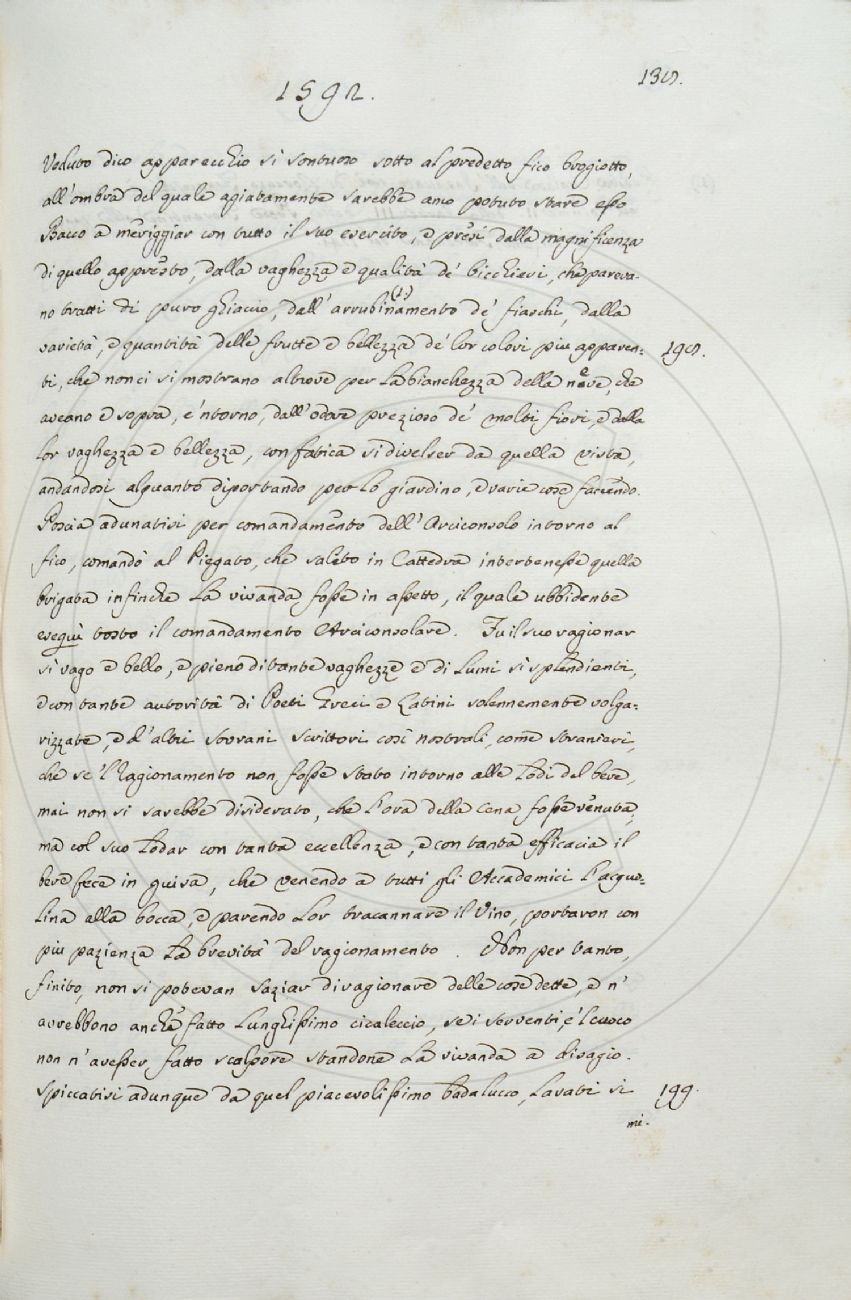 1592.
139.
Veduto dico apparecchio sì sontuoso sotto al predetto fico brogiotto,
all'ombra del quale agiatamente sarebbe anco potuto stare esso
Bacco a meriggiar con tutto il suo esercito, e presi dalla magnificenza
di quello appresto, dalla vaghezza e qualità de' bicchieri, che pareva-
no tratti di puro ghiaccio, dall'arrubinamento (1) de' fiaschi, dalla
varietà, e quantità delle frutte e bellezza de' lor colori più apparen-
ti, che non ci si mostrano altrove per la bianchezza della neve, che
aveano e sopra, e 'ntorno, dall'odore prezioso de' molti fiori, e dalla
lor vaghezza e bellezza, con fatica si divelser da quella vista,
andandosi alquanto diportando per lo giardino, e varie cose facendo.
Poscia adunatisi per comandamento dell'Arciconsolo intorno al
fico, comandò al Piegato, che salito in Cattedra intertenesse quella
brigata infinche la vivanda fosse in assetto, il quale ubbidente
eseguì tosto il comandamento Arciconsolare. Fu il suo ragionar
si vago e bello, e pieno di tante vaghezze e di lumi si splendienti,
e con tante autorità di Poeti Greci e Latini solennemente volga-
rizzate, e d'altri sovrani scrittori così nostrali, come stranieri,
che se 'l ragionamento non fosse stato intorno alle lodi del bere,
mai non si sarebbe disiderato, che l'ora della cena fosse venuta,
ma col suo lodar con tanta eccellenza, e con tanta efficacia il
bere fece in guisa, che venendo a tutti gli Accademici l'acquo-
lina alla bocca, e parendo lor tracannare il vino, portaron con
più pazienza la brevità del ragionamento. Non per tanto,
finito, non si potevan saziar di ragionare delle cose dette, e n'
avrebbono anche fatto lunghissimo cicaleccio, se i serventi, e 'l cuoco
non n'avesser fatto scalpore standone la vivanda a disagio.
Spiccatisi adunque da quel piacevolissimo badalucco, lavati si
198.
199.
mi.